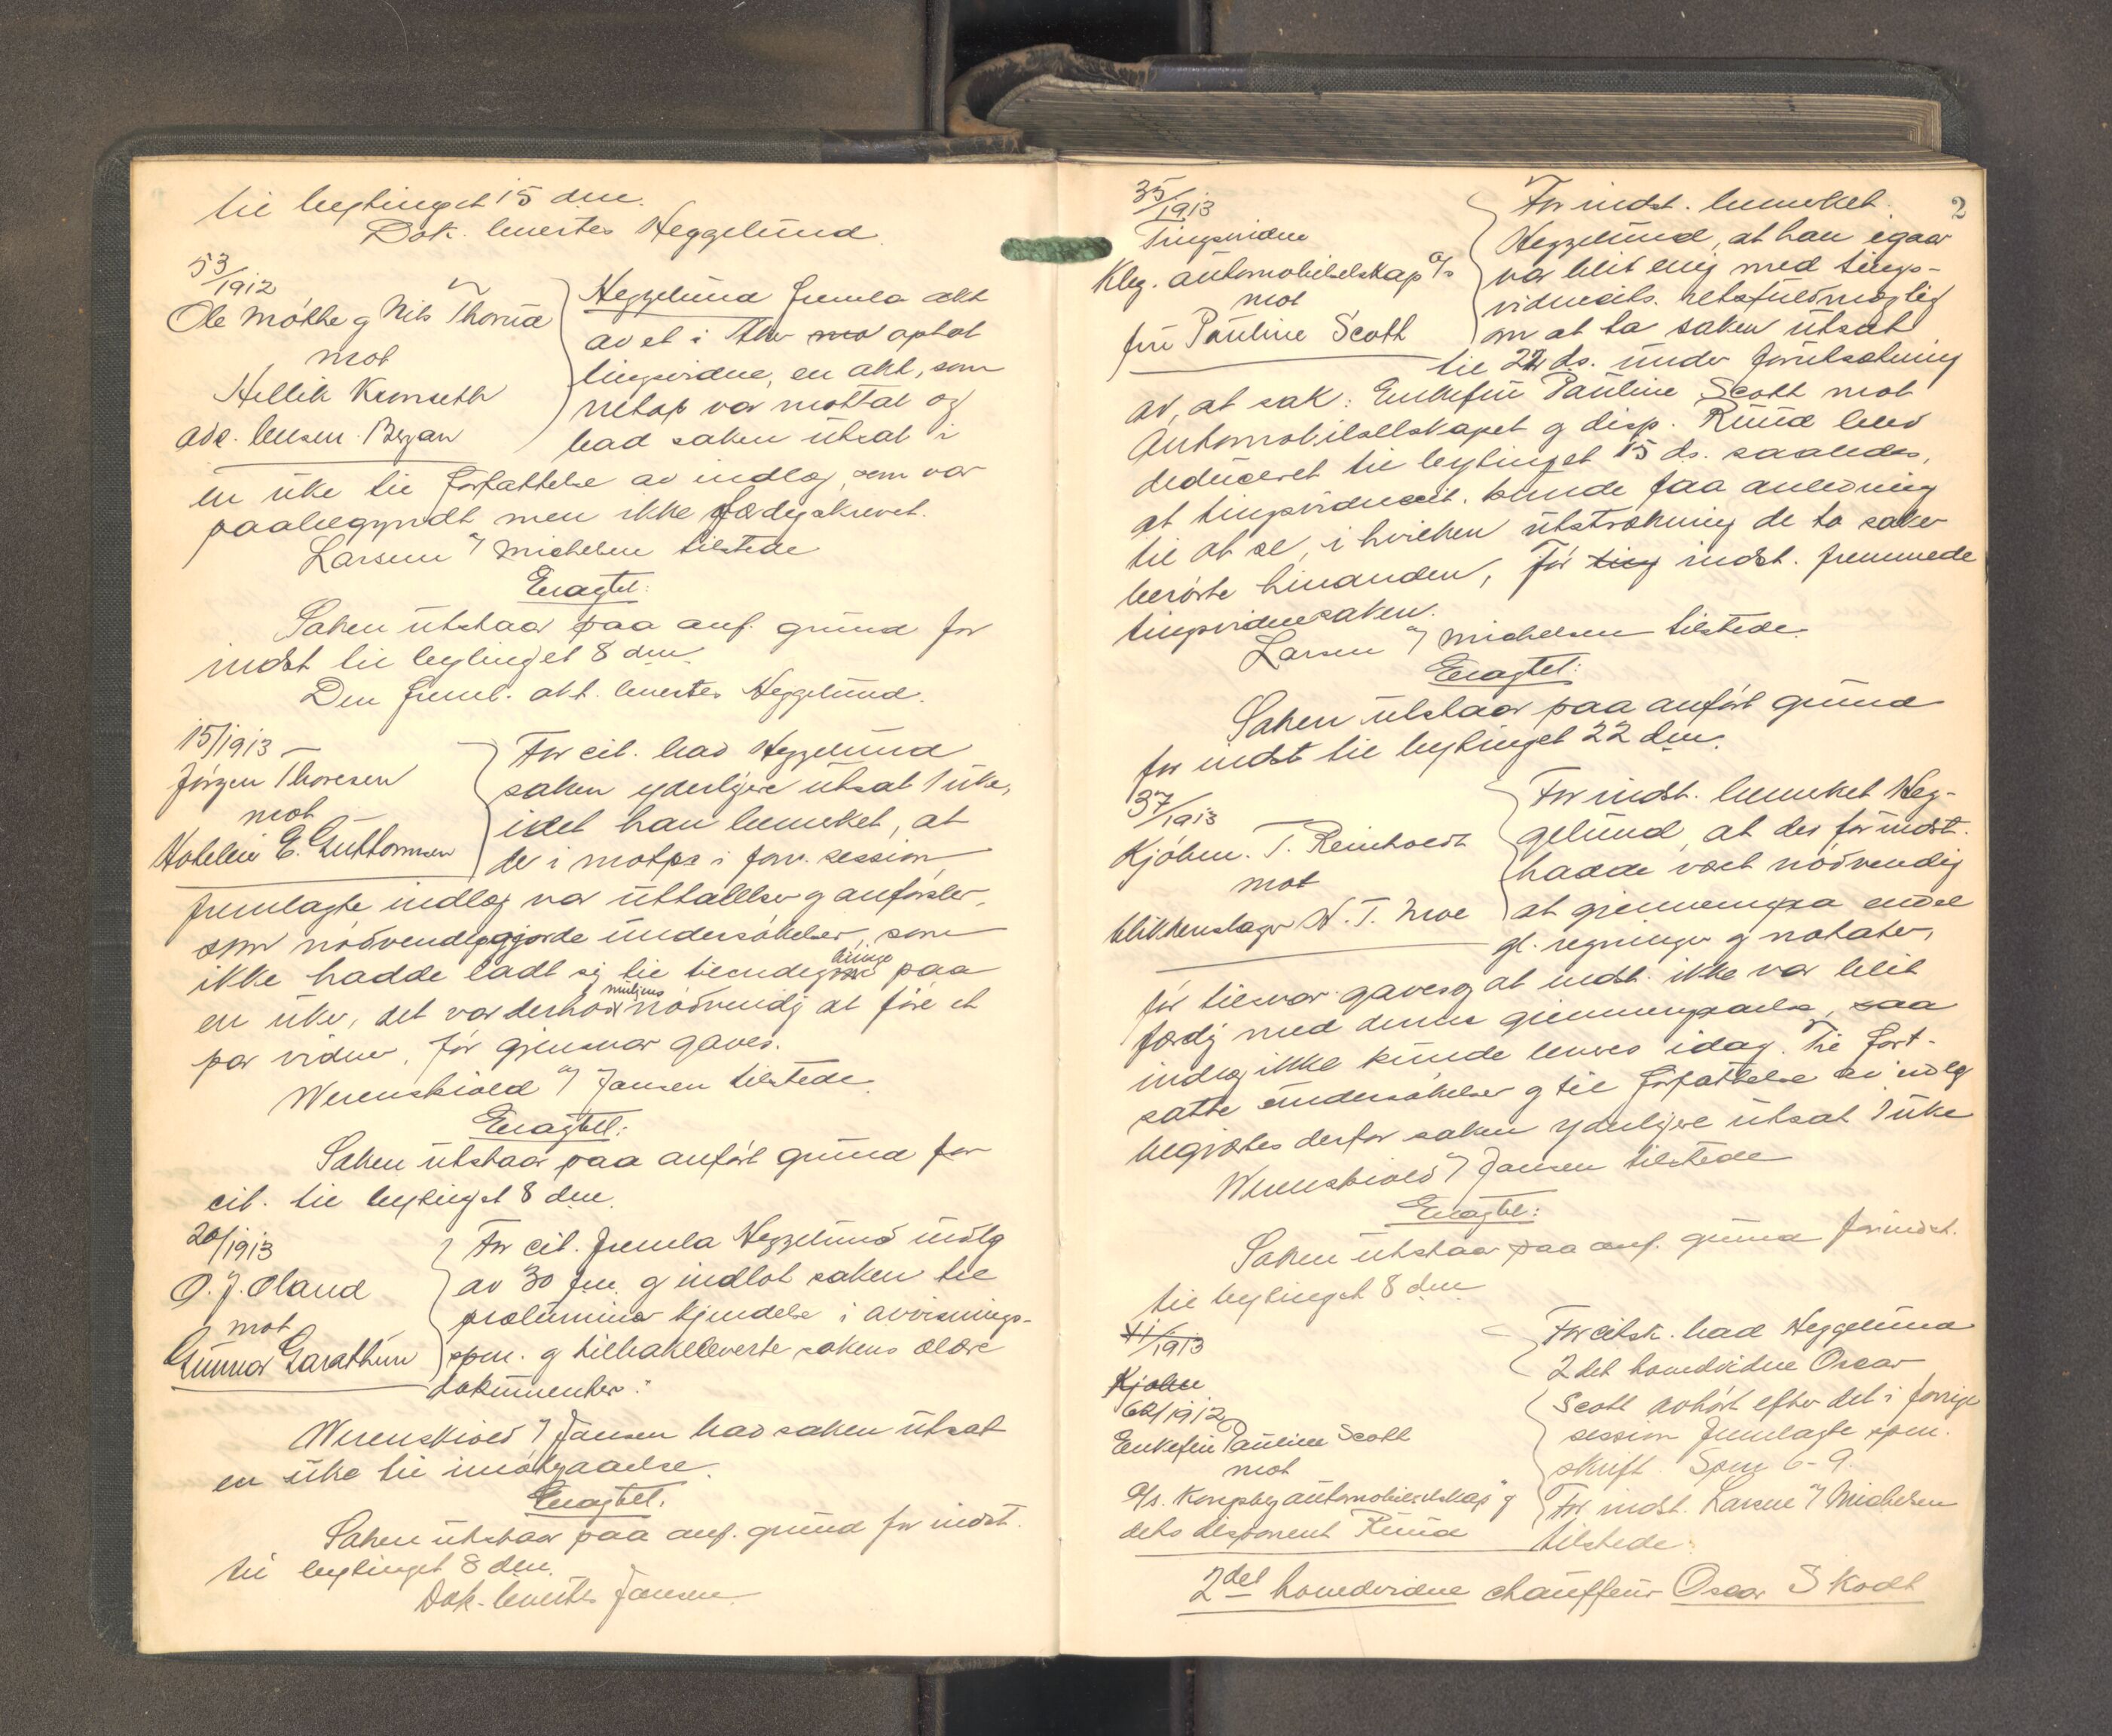 til bytinget 15 dm.
Dok. levertes Heggelund.
53/1912
Ole Möthe g Nils Thorud
mot
Hellik Kronseth
adv. Bergan
Heggelund freml. akt
av et i optat
tingsvidne, en akt, som
netop var mottat og
bad saken utsat i
en uke til forfattelse av indlæg, som var
paabegyndt men ikke færdigskrevet.
Larsen v/ Michelsen tilstede
Eragtet:
Saken utstaar paa anf. grund for
indst til bytinget 8 dm.
Den freml. akt. levertes Heggelund.
15/1913
Jörgen Thoresen
mot
Hoteleier E. Guttormsen
For cit. bad Heggelund
saken yderligere utsat 1 uke,
idet han bemerket, at
der i motps i forr. session
fremlagte indlæg var uttallelser g anförsler,
som nödvendiggjorde undersökelser, som
ikke hadde ladt sig til tilendebringe paa
en uke, det var derhos muligens nödvendig at före et
par vidner, för gjensvar gaves.
Werenskiold v/ Jansen tilstede.
Eragtet:
Saken utstaar paa anfört grund for
cit. til bytinget 8 dm.
20/1913
O. J. Oland
mot
Gunnar Garathun
For cit. fremla Heggelund indlg
av 30 fm. g indlot saken til
præliminær kjendelse i avvisnings-
spm. g tilbakeleverte sakens ældre
dokumenter.
Werenskiold v/ Jansen bad saken utsat
en uke til imötegaaelse.
Eragtet.
Saken utstaar paa anf. grund for indst.
til bytinget 8 dm.
Dok. levertes Jansen.
2
35/1913
Tingsvidne
Kbg. automobilselskap a/s
mot
fru Pauline Scott
For indst. bemerket
Heggelund, at han igaar
var blit enig med tings-
vidnecits. retsfuldmægtig
om at ta saken utsat
til 22 ds. under forutsætning
av, at sak: Enkefru Pauline Scott mot
Automobilselskapet g disp. Ruud blev
deduceret til bytinget 15 ds. saaledes,
at tingsvidnecit. kunde faa anledning
til at se, i hvilken utstrækning de to saker
berörte hinanden, för ting indst. fremmede
tingsvidnesaken.
Larsen v/ Michelsen tilstede.
Eragtet:
Saken utstaar paa anfört grund
for indst til bytinget 22 dm.
37/1913
Kjöbm. T. Reinholdt
mot
blikkenslager N. T. Moe
For indst. bemerket Heg-
gelund, at det for indst.
hadde vært nödvendig
at gjennemgaa endel
gl. regninger g notater,
för tilsvar gaves g at indst. ikke var blit
færdig med denne gjennemgaaelse, saa
indlæg ikke kunde leveres idag. Til fort-
satte undersökelser g til forfattelse av indlg
begjærtes derfor saken yderligere utsat 1 uke
Werenskiold v/ Jansen tilstede
Eragtet:
Saken utstaar paa anf. grund for indst.
til bytinget 8 dm
41/1913
Kjöbm
62/1912
Enkefru Pauline Scott
mot
A/s. Kongsberg automobilselskap g
dets disponent Ruud
For citsk. bad Heggelund
2det hovedvidne Oscar
Scott avhört efter det i forrige
session fremlagte spm.
skrift. Spm 6-9.
For indst. Larsen v/ Michelsen
tilstede.
2det hovedvidne chauffeur Oscar Skodt